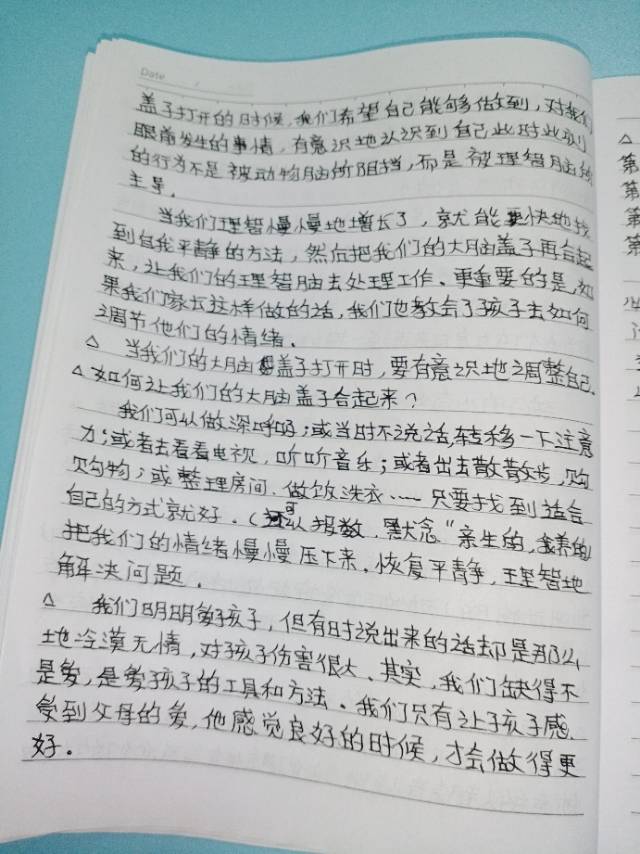 Date
盖子打开的时候,我们希望自己能够做到,对我们
眼前发生的事情,有意识地认识到自己此时此刻
的行为不是被动物脑所阻挡,而是被理智脑所
主导。
当我们理智慢慢地增长了,就能更快地找
到自我平静的方法,然后把我们的大脑盖子再合起
来,让我们的理智脑去处理工作。更重要的是,如
果我们家长这样做的话,我们也教会了孩子去如何
调节他们的情绪。
△ 当我们的大脑盖子打开时,要有意识地调整自己。
△如何让我们的大脑盖子合起来?
我们可以做深呼吸;或当时不说话,转移一下注意
力;或者去看看电视,听听音乐;或者出去散散步,购
购物;或整理房间,做饭洗衣……只要找到适合
自己的方式就好。(还可以报数,默念“亲生的,我养的
把我们的情绪慢慢压下来,恢复平静,理智地
解决问题。
△ 我们明明爱孩子,但有时说出来的话却是那么
地冷漠无情,对孩子伤害很大。其实,我们缺得不
是爱,是爱孩子的工具和方法。我们只有让孩子感
受到父母的爱,他感觉良好的时候,才会做得更
好。
△
第
第
第
第